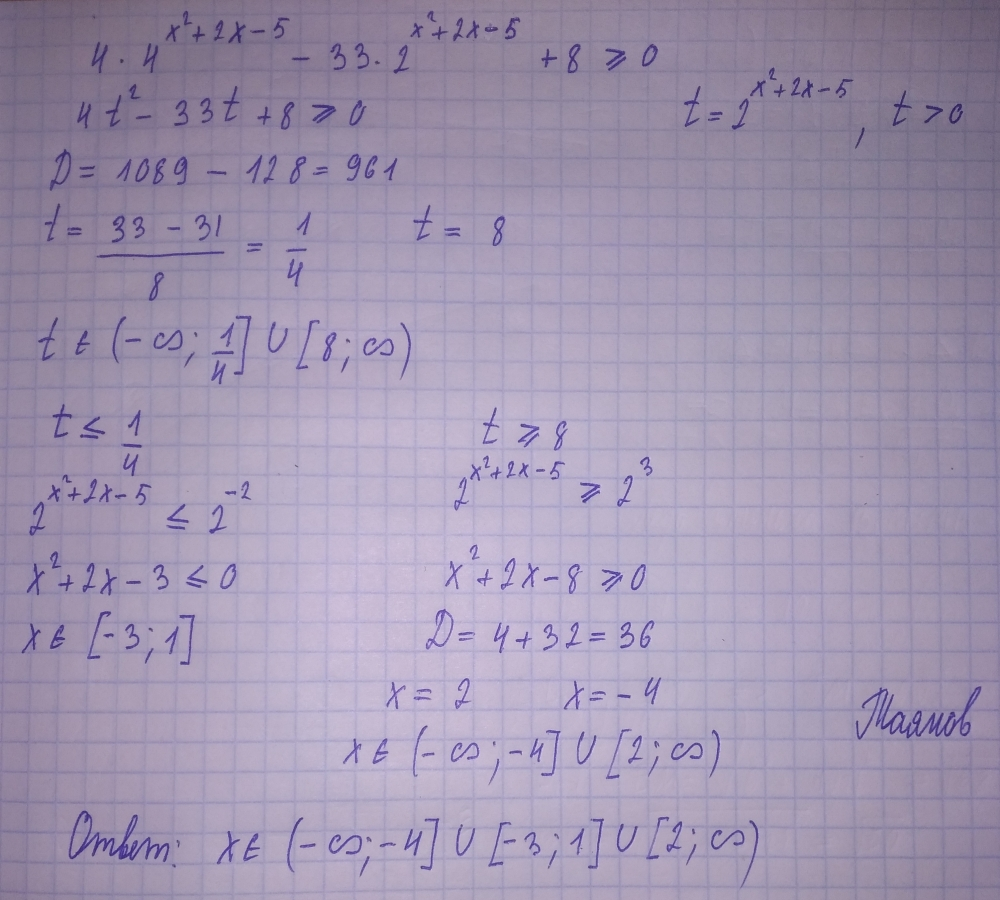 4 · 4^(x²+2x−5) − 33 · 2^(x²+2x−5) + 8 ⩾ 0
4t² − 33t + 8 ⩾ 0      t = 2^(x²+2x−5), t > 0
D = 1089 − 128 = 961
t = (33 − 31)/8 = 1/4      t = 8
t ∈ (−∞; 1/4] ∪ [8; ∞)
t ≤ 1/4      t ⩾ 8
2^(x²+2x−5) ≤ 2^(−2)      2^(x²+2x−5) ⩾ 2³
x² + 2x − 3 ≤ 0      x² + 2x − 8 ⩾ 0
x ∈ [−3; 1]      D = 4 + 32 = 36
x = 2      x = −4
x ∈ (−∞; −4] ∪ [2; ∞)
Ответ: x ∈ (−∞; −4] ∪ [−3; 1] ∪ [2; ∞)